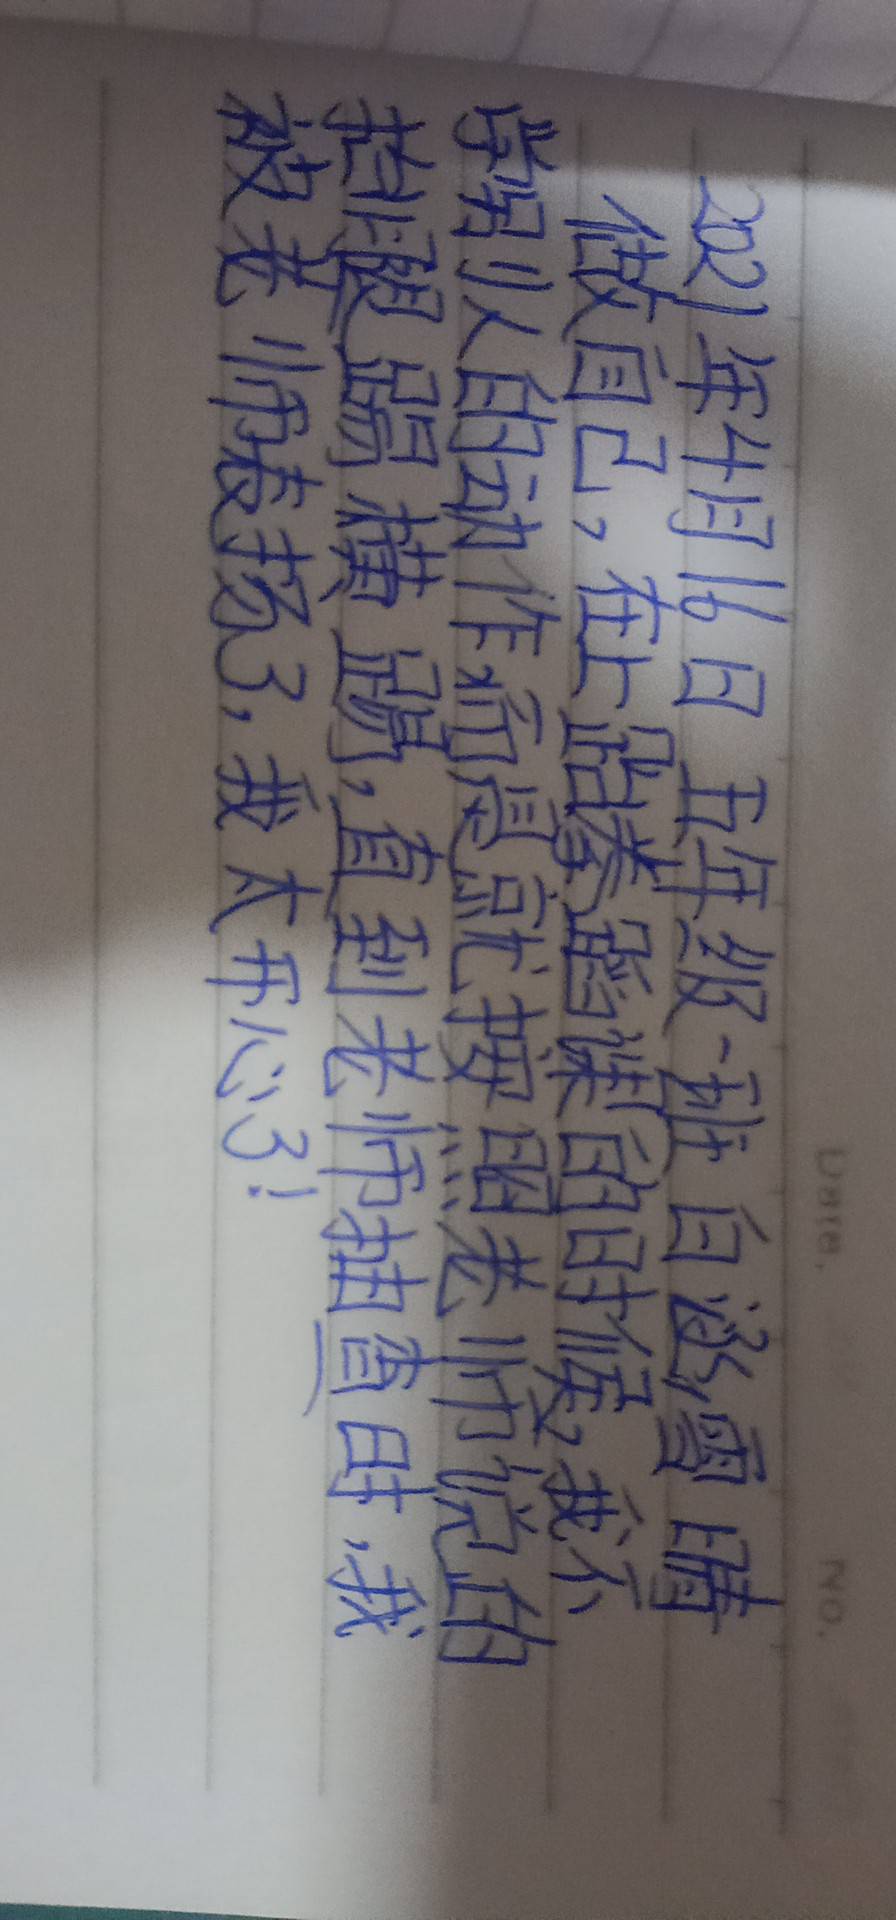 Date. NO.
2021年4月16日 五年级一班 白泌雪晴
做自己,在上跆拳蹈课的时候,我不
学别人的动作而是就按照老师说的
把腿踢横踢,直到老师抽查时,我
被老师表扬了,我太开心了!